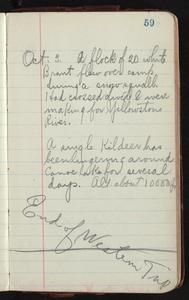 59
Oct. 3. A flock of 20 white
Brant flew over camp
during a snow squall
Had crossed divide & were
making for Yellowstone
River.
A single Kildeer has
been lingering around
Canoe Lake for several
days. Alt. about 10000 ft
End of Western Trip